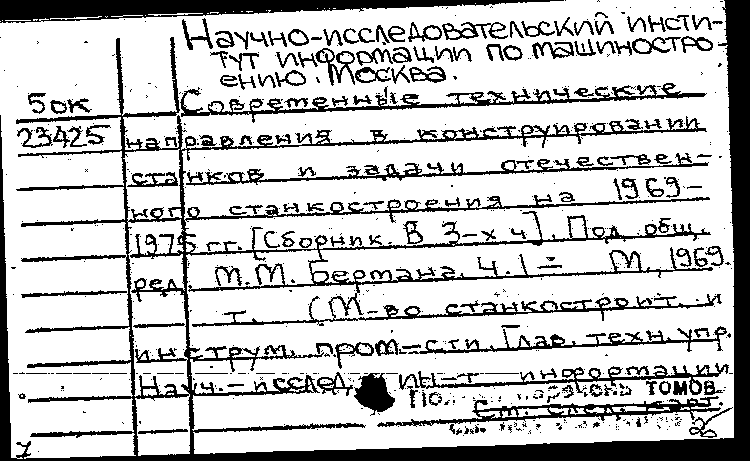 Научно-исследовательский инсти-
тут информации по машиностро-
ению. Москва.
5ок
Современные технические
23425
направления в конструировании
станков и задачи отечествен-
ного станкостроения на 1969-
1975 гг. [Сборник. В 3-х ч]. Под общ.
ред. М.М. Бермана. Ч. 1 - М., 1969.
т. (М-во станкостроит. и
инструм. пром-сти. Глав. техн. упр.
Науч.-исслед. ин-т информации
перечень ТОМОВ
См. след. карт.
1
2